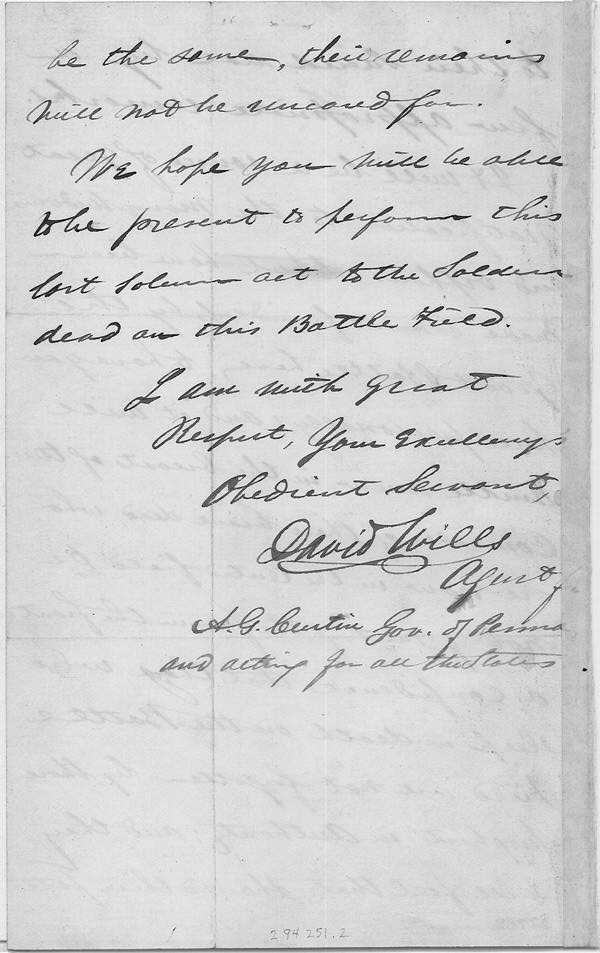 be the same, their remains
will not be uncared for.
We hope you will be able
to be present to perform this
last solemn act to the Soldiers
dead on this Battle Field.
I am with great
Respect, Your Excellency's
Obedient Servant,
David Wills
Agent for
A. G. Curtin Gov. of Penna
and acting for all the States
294 251.2